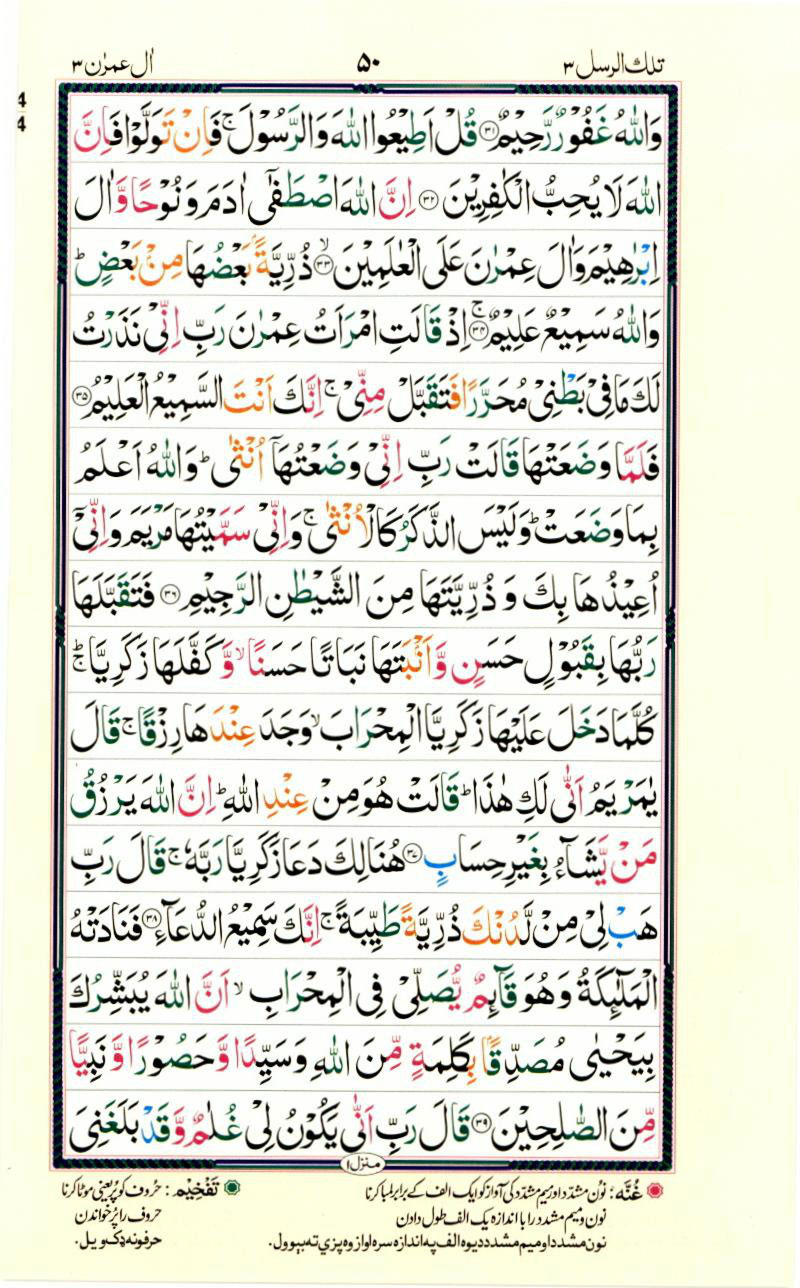 تلك الرسل ۳ ۵۰ اٰل عمرٰن ۳
4
4
وَاللّٰهُ غَفُوْرٌ رَّحِيْمٌ ﴿۳۱﴾ قُلْ اَطِيْعُوا اللّٰهَ وَالرَّسُوْلَ ۚ فَاِنْ تَوَلَّوْا فَاِنَّ
اللّٰهَ لَا يُحِبُّ الْكٰفِرِيْنَ ﴿۳۲﴾ اِنَّ اللّٰهَ اصْطَفٰٓى اٰدَمَ وَنُوْحًا وَّاٰلَ
اِبْرٰهِيْمَ وَاٰلَ عِمْرٰنَ عَلَى الْعٰلَمِيْنَ ۙ﴿۳۳﴾ ذُرِّيَّةًۢ بَعْضُهَا مِنْۢ بَعْضٍ ؕ
وَاللّٰهُ سَمِيْعٌ عَلِيْمٌ ۚ﴿۳۴﴾ اِذْ قَالَتِ امْرَاَتُ عِمْرٰنَ رَبِّ اِنِّىْ نَذَرْتُ
لَكَ مَا فِىْ بَطْنِىْ مُحَرَّرًا فَتَقَبَّلْ مِنِّىْ ۚ اِنَّكَ اَنْتَ السَّمِيْعُ الْعَلِيْمُ ﴿۳۵﴾
فَلَمَّا وَضَعَتْهَا قَالَتْ رَبِّ اِنِّىْ وَضَعْتُهَاۤ اُنْثٰى ؕ وَاللّٰهُ اَعْلَمُ
بِمَا وَضَعَتْ ؕ وَلَيْسَ الذَّكَرُ كَالْاُنْثٰى ۚ وَاِنِّىْ سَمَّيْتُهَا مَرْيَمَ وَاِنِّىْۤ
اُعِيْذُهَا بِكَ وَذُرِّيَّتَهَا مِنَ الشَّيْطٰنِ الرَّجِيْمِ ﴿۳۶﴾ فَتَقَبَّلَهَا
رَبُّهَا بِقَبُوْلٍ حَسَنٍ وَّاَنْۢبَتَهَا نَبَاتًا حَسَنًا ۙ وَّكَفَّلَهَا زَكَرِيَّا ؕۚ
كُلَّمَا دَخَلَ عَلَيْهَا زَكَرِيَّا الْمِحْرَابَ ۙ وَجَدَ عِنْدَهَا رِزْقًا ۚ قَالَ
يٰمَرْيَمُ اَنّٰى لَكِ هٰذَا ؕ قَالَتْ هُوَ مِنْ عِنْدِ اللّٰهِ ؕ اِنَّ اللّٰهَ يَرْزُقُ
مَنْ يَّشَآءُ بِغَيْرِ حِسَابٍ ﴿۳۷﴾ هُنَالِكَ دَعَا زَكَرِيَّا رَبَّهٗ ۚ قَالَ رَبِّ
هَبْ لِىْ مِنْ لَّدُنْكَ ذُرِّيَّةً طَيِّبَةً ۚ اِنَّكَ سَمِيْعُ الدُّعَآءِ ﴿۳۸﴾ فَنَادَتْهُ
الْمَلٰٓئِكَةُ وَهُوَ قَآئِمٌ يُّصَلِّىْ فِى الْمِحْرَابِ ۙ اَنَّ اللّٰهَ يُبَشِّرُكَ
بِيَحْيٰى مُصَدِّقًۢا بِكَلِمَةٍ مِّنَ اللّٰهِ وَسَيِّدًا وَّحَصُوْرًا وَّنَبِيًّا
مِّنَ الصّٰلِحِيْنَ ﴿۳۹﴾ قَالَ رَبِّ اَنّٰى يَكُوْنُ لِىْ غُلٰمٌ وَّقَدْ بَلَغَنِىَ
منزل ۱
غُنَّه: نون مشدد اور میم مشدد کی آواز کو ایک الف کے برابر لمبا کرنا تَفْخِيْم: حروف کو پُر یعنی موٹا کرنا
نون و میم مشدد را با اندازه یک الف طول دادن حروف را پُر خواندن
نون مشدد او میم مشدد د یوه الف په اندازه سره اواز وه پزې ته بېوول. حرفونه ډک ویل.